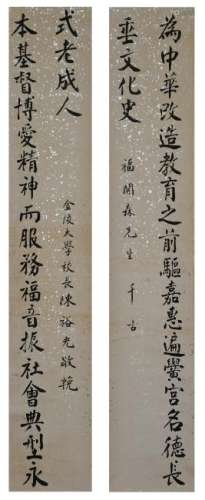 為中華改造教育之前驅嘉惠遍黌宮名德長
垂文化史
福開森先生千古
本基督博愛精神而服務福音振社會典型永
式老成人
金陵大學校長陳裕光敬輓